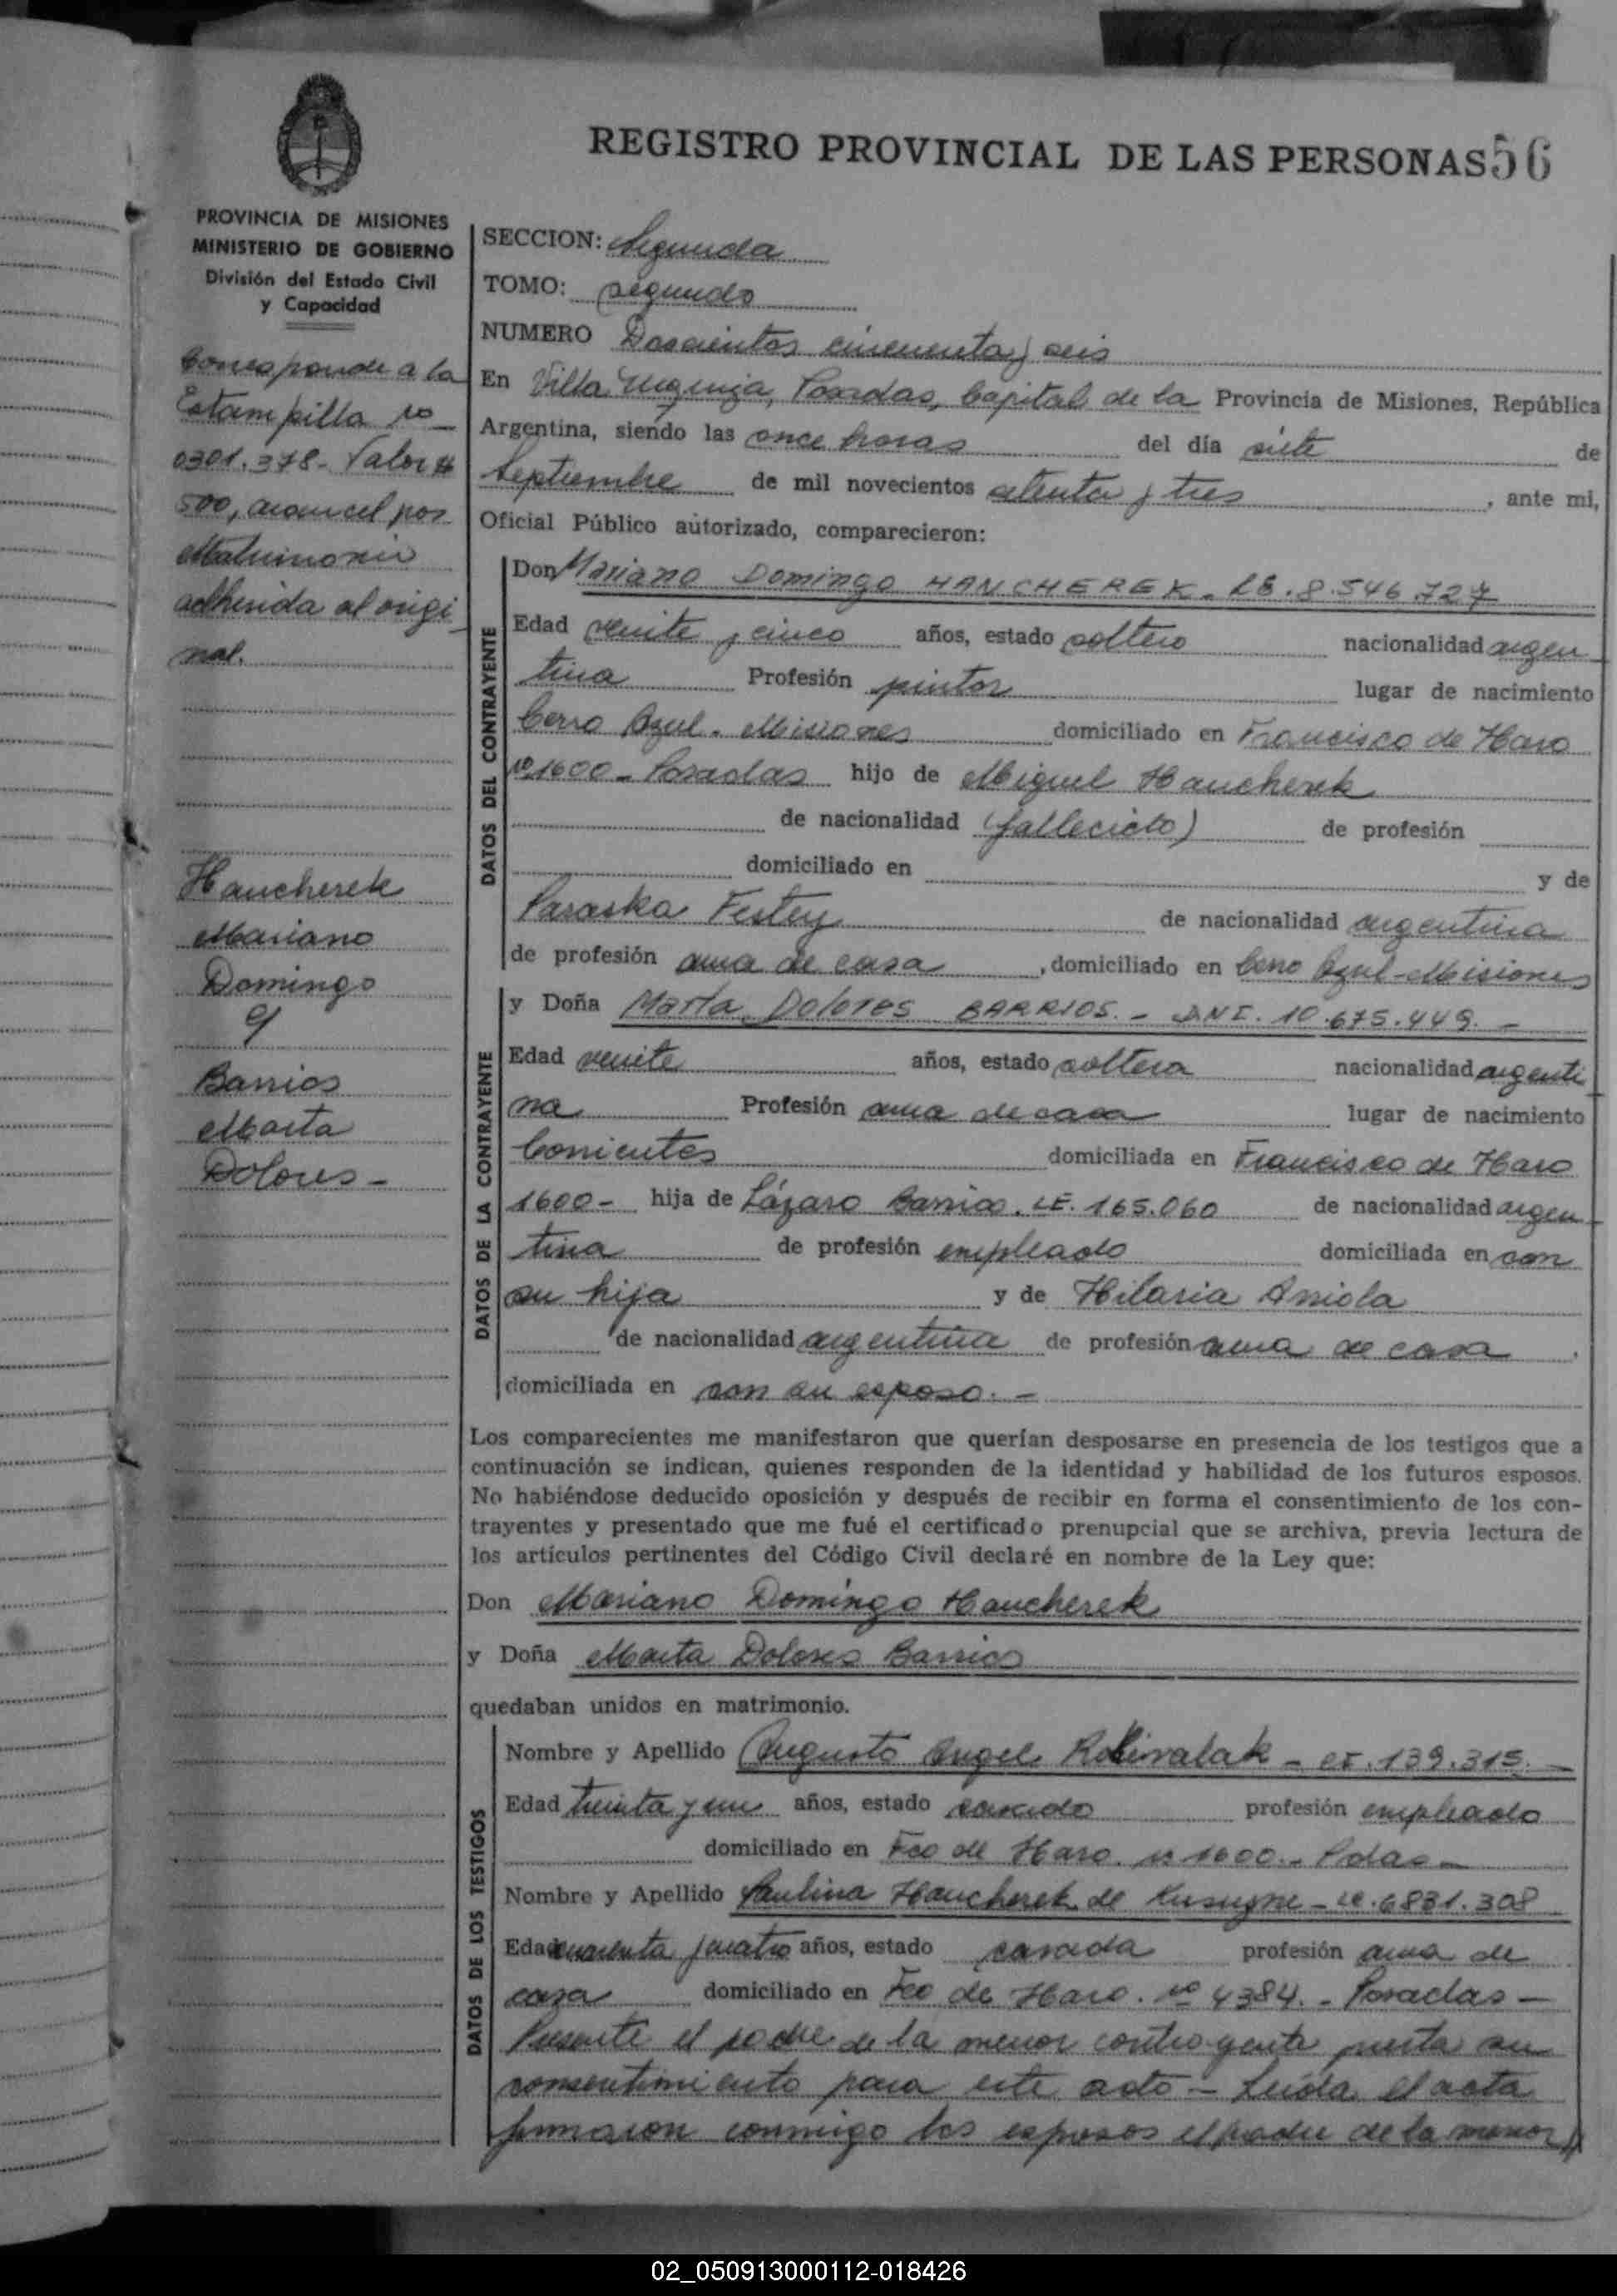 REGISTRO PROVINCIAL DE LAS PERSONAS 56
PROVINCIA DE MISIONES
MINISTERIO DE GOBIERNO
División del Estado Civil
y Capacidad
Corresponde a la
Estampilla no
0301.378- Valor $
500, arancel por
Matrimonio
adherida al origi
nal.
Hancherek
Mariano
Domingo
Barrios
Marta
Dolores -
SECCION: Segunda
TOMO: segundo
NUMERO Doscientos cincuenta y seis
En Villa Urquiza, Posadas, Capital de la Provincia de Misiones, República
Argentina, siendo las once horas del día siete de
Septiembre de mil novecientos setenta y tres, ante mi,
Oficial Público autorizado, comparecieron:
DATOS DEL CONTRAYENTE
Don Mariano Domingo HANCHEREK. LE. 8.546.727
Edad veinte y cinco años, estado soltero nacionalidad argen
tina Profesión pintor lugar de nacimiento
Cerro Azul. Misiones domiciliado en Francisco de Haro
no 1600 - Posadas hijo de Miguel Hancherek
de nacionalidad (fallecido) de profesión
domiciliado en y de
Paraska Festey de nacionalidad argentina
de profesión ama de casa, domiciliado en Cerro Azul - Misiones
DATOS DE LA CONTRAYENTE
y Doña Marta Dolores BARRIOS. - DNI. 10.675.449. -
Edad veinte años, estado soltera nacionalidad argenti
na Profesión ama de casa lugar de nacimiento
Corrientes domiciliada en Francisco de Haro
1600 - hija de Lázaro Barrios. LE. 165.060 de nacionalidad argen
tina de profesión empleado domiciliada en con
su hija y de Hilaria Arriola
de nacionalidad argentina de profesión ama de casa.
domiciliada en con su esposo. -
Los comparecientes me manifestaron que querían desposarse en presencia de los testigos que a
continuación se indican, quienes responden de la identidad y habilidad de los futuros esposos.
No habiéndose deducido oposición y después de recibir en forma el consentimiento de los con-
trayentes y presentado que me fué el certificado prenupcial que se archiva, previa lectura de
los artículos pertinentes del Código Civil declaré en nombre de la Ley que:
Don Mariano Domingo Hancherek
y Doña Marta Dolores Barrios
quedaban unidos en matrimonio.
DATOS DE LOS TESTIGOS
Nombre y Apellido Augusto Angel - CI. 139.315. -
Edad treinta y un años, estado casado profesión empleado
domiciliado en Fco de Haro. no 1600. - Pdas -
Nombre y Apellido Paulina Hancherek de - LC. 6831.308
Edad cuarenta y cuatro años, estado casada profesión ama de
casa domiciliado en Fco de Haro. no 4384. - Posadas -
Presente el padre de la menor contrayente presta su
consentimiento para este acto - Leída el acta
firmaron conmigo los esposos el padre de la menor//
02_050913000112-018426